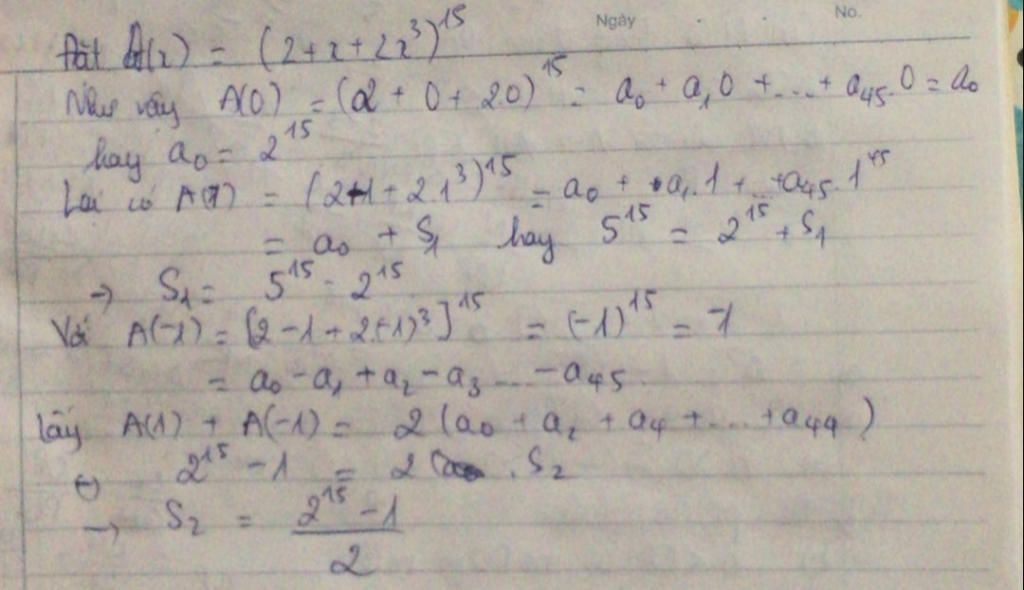 Ngày No.
Đặt A(x) = (2+x+2x³)¹⁵
Như vậy A(0) = (2 + 0 + 2.0)¹⁵ = a₀ + a₁0 + ... + a₄₅.0 = a₀
hay a₀ = 2¹⁵
Lại có A(1) = (2+1+2.1³)¹⁵ = a₀ + a₁.1 + ... + a₄₅.1⁴⁵
= a₀ + S₁ hay 5¹⁵ = 2¹⁵ + S₁
→ S₁ = 5¹⁵ - 2¹⁵
Với A(-1) = [2 - 1 + 2(-1)³]¹⁵ = (-1)¹⁵ = -1
= a₀ - a₁ + a₂ - a₃ ... - a₄₅
Lấy A(1) + A(-1) = 2(a₀ + a₂ + a₄ + ... + a₄₄)
(-) 2¹⁵ - 1 = 2 . S₂
→ S₂ = (2¹⁵ - 1)/2